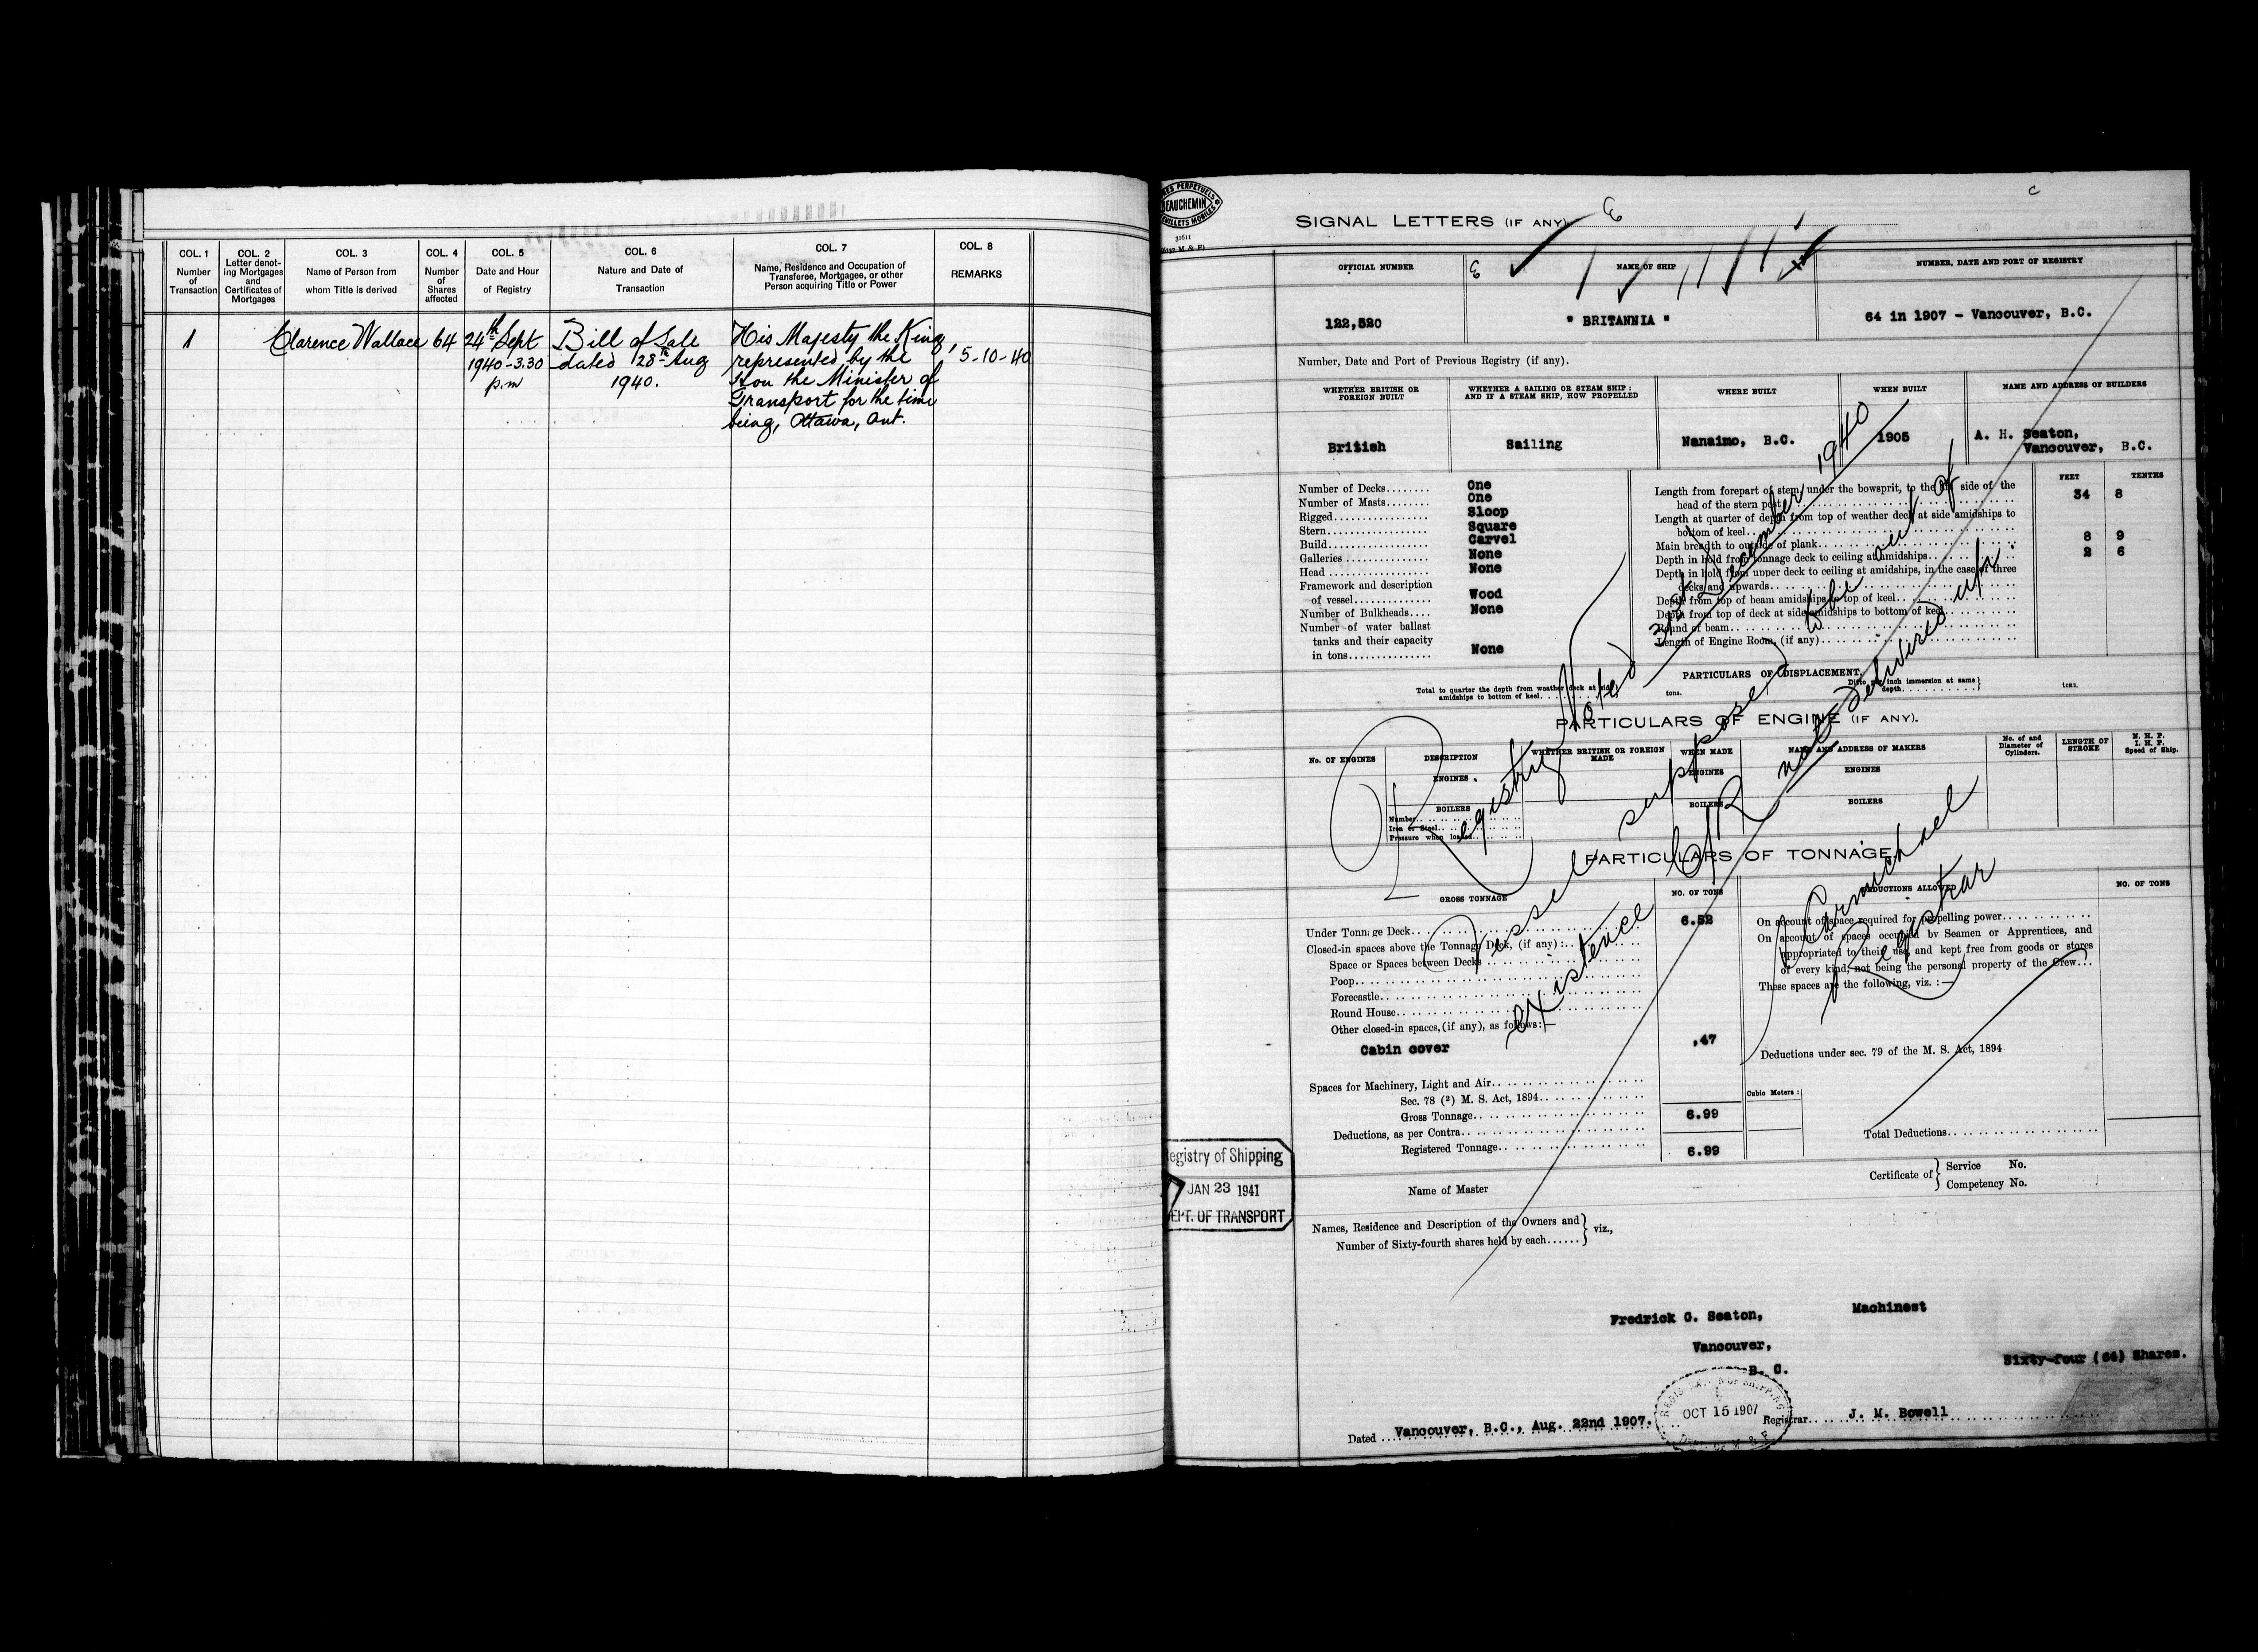 COL. 1
Number
of
Transaction
COL. 2
Letter denot-
ing Mortgages
and
Certificates of
Mortgages
COL. 3
Name of Person from
whom Title is derived
COL. 4
Number
of
Shares
affected
COL. 5
Date and Hour
of Registry
COL. 6
Nature and Date of
Transaction
COL. 7
Name, Residence and Occupation of
Transferee, Mortgagee, or other
Person acquiring Title or Power
COL. 8
REMARKS
1
Clarence Wallace
64
24th Sept
1940-3.30
p.m
Bill of Sale
dated 28th Aug
1940.
His Majesty the King,
represented by the
Hon the Minister of
Transport for the time
being, Ottawa, Ont.
5-10-40
BEAUCHEMIN
31611
SIGNAL LETTERS (IF ANY)
OFFICIAL NUMBER
NAME OF SHIP
NUMBER, DATE AND PORT OF REGISTRY
122,520
" BRITANNIA "
64 in 1907 - Vancouver, B.C.
Number, Date and Port of Previous Registry (if any).
WHETHER BRITISH OR
FOREIGN BUILT
WHETHER A SAILING OR STEAM SHIP :
AND IF A STEAM SHIP, HOW PROPELLED
WHERE BUILT
WHEN BUILT
NAME AND ADDRESS OF BUILDERS
British
Sailing
Nanaimo, B.C.
1905
A. H. Seaton,
Vancouver, B.C.
Number of Decks........ One
Number of Masts........ One
Rigged................. Sloop
Stern.................. Square
Build.................. Carvel
Galleries.............. None
Head................... None
Framework and description
of vessel.............. Wood
Number of Bulkheads.... None
Number of water ballast
tanks and their capacity
in tons............... None
FEET
TENTHS
Length from forepart of stem under the bowsprit, to the aft side of the
head of the stern post
34 8
Length at quarter of depth from top of weather deck at side amidships to
bottom of keel
Main breadth to outside of plank
8 9
Depth in hold from tonnage deck to ceiling at amidships
2 6
Depth in hold from upper deck to ceiling at amidships, in the case of three
decks and upwards
Depth from top of beam amidships to top of keel
Depth from top of deck at side amidships to bottom of keel
Round of beam
Length of Engine Room, (if any)
PARTICULARS OF DISPLACEMENT.
Total to quarter the depth from weather deck at side
amidships to bottom of keel
tons.
Ditto per inch immersion at same
depth
tons.
PARTICULARS OF ENGINE (IF ANY).
No. OF ENGINES
DESCRIPTION
WHETHER BRITISH OR FOREIGN
MADE
WHEN MADE
NAME AND ADDRESS OF MAKERS
No. of and
Diameter of
Cylinders.
LENGTH OF
STROKE
N. H. P.
I. H. P.
Speed of Ship.
ENGINES
ENGINES
ENGINES
BOILERS
Number
Iron or Steel
Pressure when loaded
BOILERS
BOILERS
PARTICULARS OF TONNAGE.
GROSS TONNAGE
NO. OF TONS
DEDUCTIONS ALLOWED
NO. OF TONS
Under Tonnage Deck
6.52
Closed-in spaces above the Tonnage Deck, (if any) :
Space or Spaces between Decks
Poop
Forecastle
Round House
Other closed-in spaces, (if any), as follows:—
Cabin cover
.47
Spaces for Machinery, Light and Air
Sec. 78 (2) M. S. Act, 1894
Gross Tonnage
6.99
Deductions, as per Contra
Registered Tonnage
6.99
On account of space required for propelling power
On account of spaces occupied by Seamen or Apprentices, and
appropriated to their use, and kept free from goods or stores
of every kind, not being the personal property of the Crew
These spaces are the following, viz. :—
Deductions under sec. 79 of the M. S. Act, 1894
Cubic Meters :
Total Deductions
Registry Noted 3rd December 1940
Vessel supposed to be out of
existence C/R not delivered up.
Carmichael
Registrar
Registry of Shipping
JAN 23 1941
DEPT. OF TRANSPORT
Name of Master
Certificate of
Service No.
Competency No.
Names, Residence and Description of the Owners and
Number of Sixty-fourth shares held by each......
viz.,
Fredrick G. Seaton,
Machinest
Vancouver,
B. C.
Sixty-four (64) Shares.
OCT 15 1907
Dated Vancouver, B.C., Aug. 22nd 1907.
Registrar J. M. Bowell